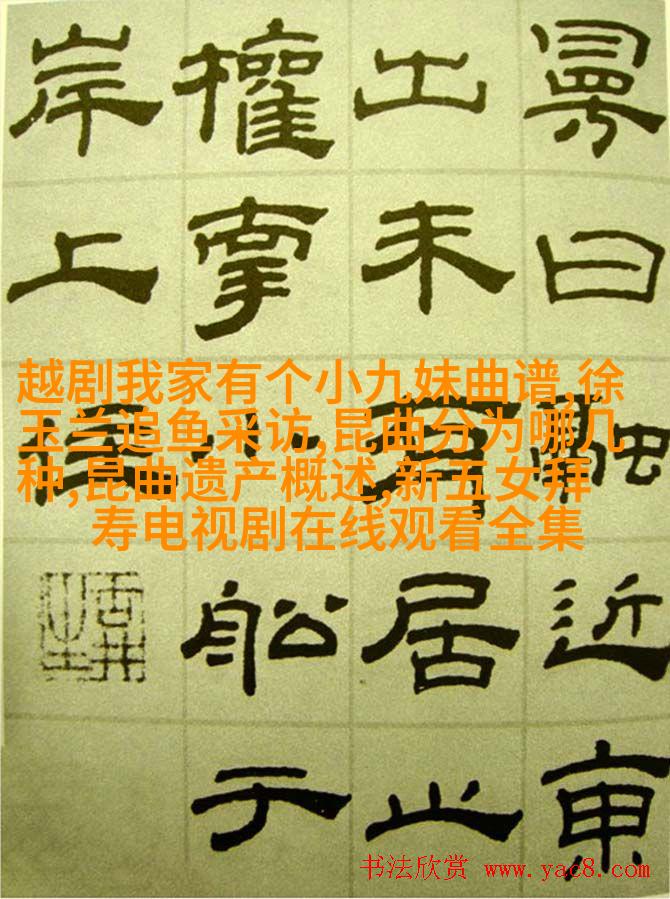 曰融近東
出未有居止
權牽小舩于
岸上住
越剧我家有个小九妹曲谱,徐
玉兰追鱼采访,昆曲分为哪几
种,昆曲遗产概述,新五女拜
寿电视剧在线观看全集
书法欣赏 www.yac8.com